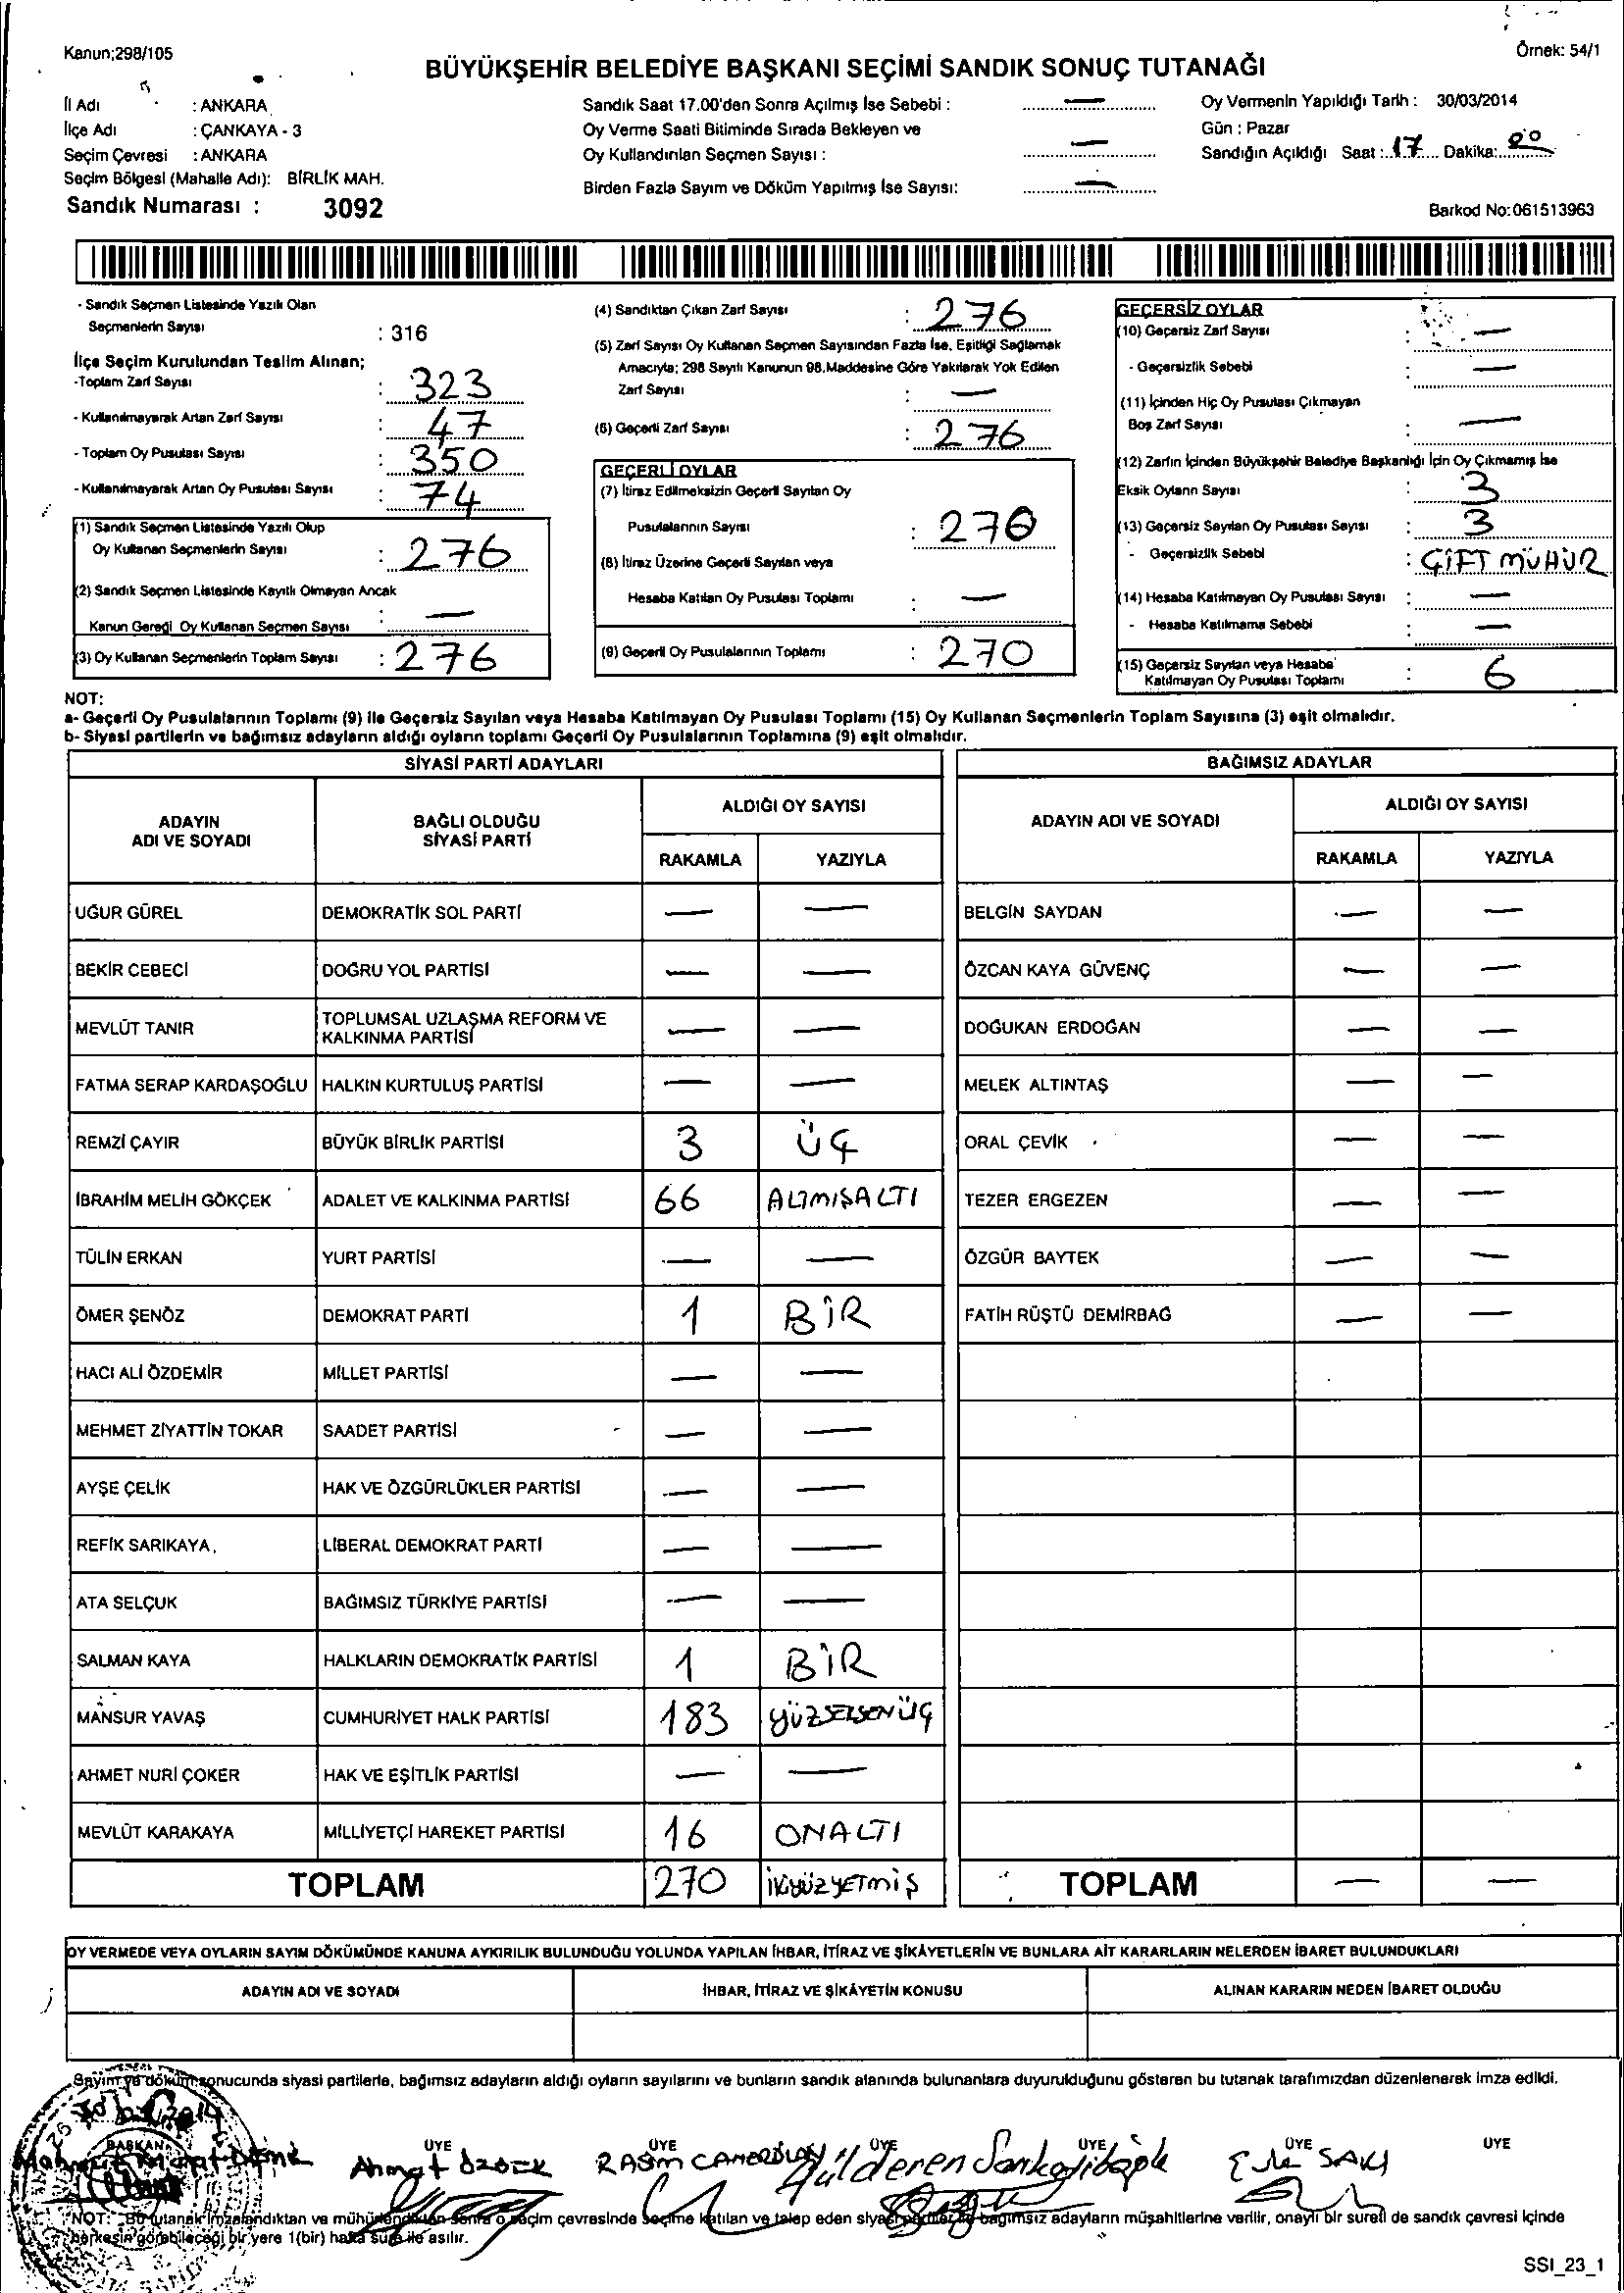 Kanun;298/105
Örnek: 54/1
BÜYÜKŞEHİR BELEDİYE BAŞKANI SEÇİMİ SANDIK SONUÇ TUTANAĞI
İl Adı : ANKARA
İlçe Adı : ÇANKAYA - 3
Seçim Çevresi : ANKARA
Seçim Bölgesi (Mahalle Adı): BİRLİK MAH.
Sandık Numarası : 3092
Sandık Saat 17.00'den Sonra Açılmış İse Sebebi : —
Oy Verme Saati Bitiminde Sırada Bekleyen ve
Oy Kullandırılan Seçmen Sayısı : —
Birden Fazla Sayım ve Döküm Yapılmış İse Sayısı: —
Oy Vermenin Yapıldığı Tarih : 30/03/2014
Gün : Pazar
Sandığın Açıldığı Saat : 17 Dakika: 00
Barkod No:061513963
- Sandık Seçmen Listesinde Yazılı Olan
Seçmenlerin Sayısı : 316
İlçe Seçim Kurulundan Teslim Alınan;
-Toplam Zarf Sayısı : 323
- Kullanılmayarak Artan Zarf Sayısı : 47
- Toplam Oy Pusulası Sayısı : 350
- Kullanılmayarak Artan Oy Pusulası Sayısı : 74
(1) Sandık Seçmen Listesinde Yazılı Olup
Oy Kullanan Seçmenlerin Sayısı : 276
(2) Sandık Seçmen Listesinde Kayıtlı Olmayan Ancak
Kanun Gereği Oy Kullanan Seçmen Sayısı : —
(3) Oy Kullanan Seçmenlerin Toplam Sayısı : 276
(4) Sandıktan Çıkan Zarf Sayısı : 276
(5) Zarf Sayısı Oy Kullanan Seçmen Sayısından Fazla İse, Eşitliği Sağlamak
Amacıyla; 298 Sayılı Kanunun 98.Maddesine Göre Yakılarak Yok Edilen
Zarf Sayısı : —
(6) Geçerli Zarf Sayısı : 276
GEÇERLİ OYLAR
(7) İtiraz Edilmeksizin Geçerli Sayılan Oy
Pusulalarının Sayısı : 270
(8) İtiraz Üzerine Geçerli Sayılan veya
Hesaba Katılan Oy Pusulası Toplamı : —
(9) Geçerli Oy Pusulalarının Toplamı : 270
GEÇERSİZ OYLAR
(10) Geçersiz Zarf Sayısı : —
- Geçersizlik Sebebi : —
(11) İçinden Hiç Oy Pusulası Çıkmayan
Boş Zarf Sayısı : —
(12) Zarfın İçinden Büyükşehir Belediye Başkanlığı İçin Oy Çıkmamış İse
Eksik Oyların Sayısı : 3
(13) Geçersiz Sayılan Oy Pusulası Sayısı : 3
- Geçersizlik Sebebi : ÇİFT MÜHÜR
(14) Hesaba Katılmayan Oy Pusulası Sayısı : —
- Hesaba Katılmama Sebebi : —
(15) Geçersiz Sayılan veya Hesaba
Katılmayan Oy Pusulası Toplamı : 6
NOT:
a- Geçerli Oy Pusulalarının Toplamı (9) ile Geçersiz Sayılan veya Hesaba Katılmayan Oy Pusulası Toplamı (15) Oy Kullanan Seçmenlerin Toplam Sayısına (3) eşit olmalıdır.
b- Siyasi partilerin ve bağımsız adayların aldığı oyların toplamı Geçerli Oy Pusulalarının Toplamına (9) eşit olmalıdır.
SİYASİ PARTİ ADAYLARI
ADAYIN ADI VE SOYADI BAĞLI OLDUĞU SİYASİ PARTİ ALDIĞI OY SAYISI RAKAMLA YAZIYLA
UĞUR GÜREL DEMOKRATİK SOL PARTİ — —
BEKİR CEBECİ DOĞRU YOL PARTİSİ — —
MEVLÜT TANIR TOPLUMSAL UZLAŞMA REFORM VE KALKINMA PARTİSİ — —
FATMA SERAP KARDAŞOĞLU HALKIN KURTULUŞ PARTİSİ — —
REMZİ ÇAYIR BÜYÜK BİRLİK PARTİSİ 3 ÜÇ
İBRAHİM MELİH GÖKÇEK ADALET VE KALKINMA PARTİSİ 66 ALTMIŞALTI
TÜLİN ERKAN YURT PARTİSİ — —
ÖMER ŞENÖZ DEMOKRAT PARTİ 1 BİR
HACI ALİ ÖZDEMİR MİLLET PARTİSİ — —
MEHMET ZİYATTİN TOKAR SAADET PARTİSİ — —
AYŞE ÇELİK HAK VE ÖZGÜRLÜKLER PARTİSİ — —
REFİK SARIKAYA LİBERAL DEMOKRAT PARTİ — —
ATA SELÇUK BAĞIMSIZ TÜRKİYE PARTİSİ — —
SALMAN KAYA HALKLARIN DEMOKRATİK PARTİSİ 1 BİR
MANSUR YAVAŞ CUMHURİYET HALK PARTİSİ 183 YÜZSEKSENÜÇ
AHMET NURİ ÇOKER HAK VE EŞİTLİK PARTİSİ — —
MEVLÜT KARAKAYA MİLLİYETÇİ HAREKET PARTİSİ 16 ONALTI
TOPLAM 270 İKİYÜZYETMİŞ
BAĞIMSIZ ADAYLAR
ADAYIN ADI VE SOYADI ALDIĞI OY SAYISI RAKAMLA YAZIYLA
BELGİN SAYDAN — —
ÖZCAN KAYA GÜVENÇ — —
DOĞUKAN ERDOĞAN — —
MELEK ALTINTAŞ — —
ORAL ÇEVİK — —
TEZER ERGEZEN — —
ÖZGÜR BAYTEK — —
FATİH RÜŞTÜ DEMİRBAĞ — —
TOPLAM — —
OY VERMEDE VEYA OYLARIN SAYIM DÖKÜMÜNDE KANUNA AYKIRILIK BULUNDUĞU YOLUNDA YAPILAN İHBAR, İTİRAZ VE ŞİKÂYETLERİN VE BUNLARA AİT KARARLARIN NELERDEN İBARET BULUNDUKLARI
ADAYIN ADI VE SOYADI İHBAR, İTİRAZ VE ŞİKÂYETİN KONUSU ALINAN KARARIN NEDEN İBARET OLDUĞU
Sayım ve döküm sonucunda siyasi partilerle, bağımsız adayların aldığı oyların sayılarını ve bunların sandık alanında bulunanlara duyurulduğunu gösteren bu tutanak tarafımızdan düzenlenerek imza edildi.
BAŞKAN ÜYE ÜYE ÜYE ÜYE ÜYE ÜYE
Ahmet
NOT: Bu tutanak imzalandıktan ve mühürlendikten sonra o seçim çevresinde seçime katılan ve talep eden siyasi partiler ile bağımsız adayların müşahitlerine verilir, onaylı bir sureti de sandık çevresi içinde
herkesin görebileceği bir yere 1(bir) hafta süre ile asılır.
SSI_23_1